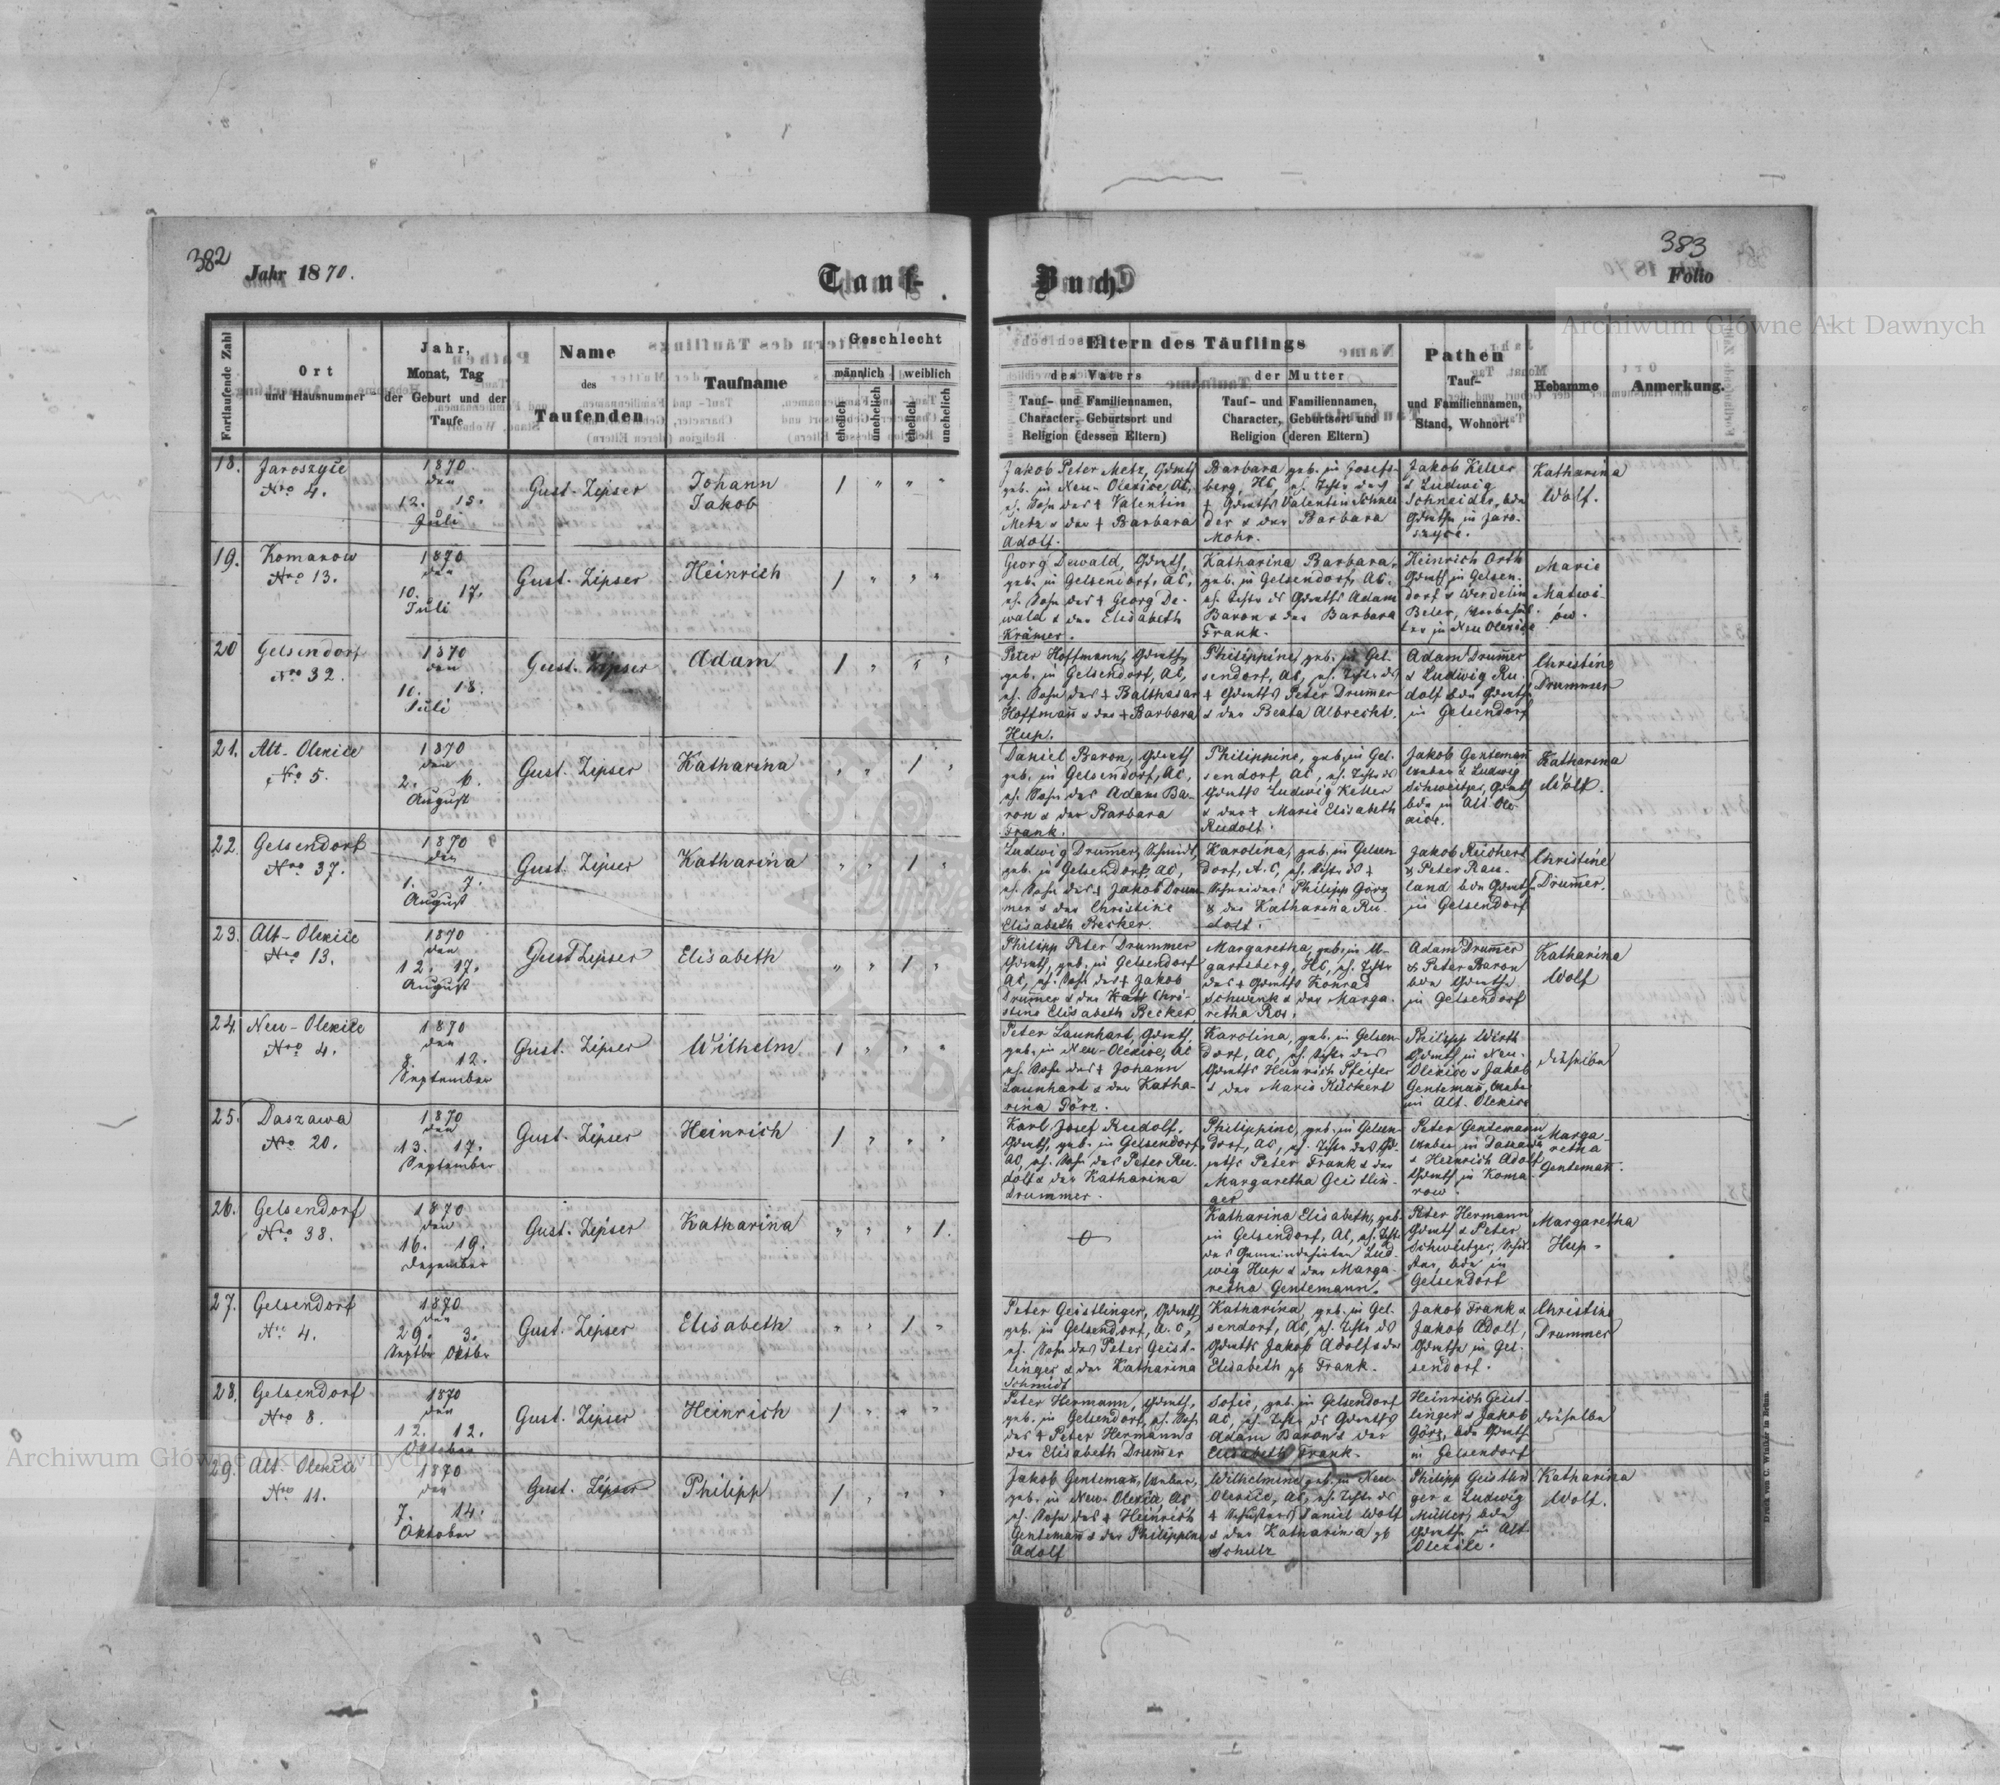 382
Jahr 1870.
Tauf-
Buch.
383
Folio
Archiwum Główne Akt Dawnych
Fortlaufende Zahl
Ort
und Hausnummer
Jahr,
Monat, Tag
der Geburt und der
Taufe
Name
des
Taufenden
Taufname
Geschlecht
männlich
weiblich
ehelich
unehelich
ehelich
unehelich
Eltern des Täuflings
des Vaters
der Mutter
Tauf- und Familiennamen,
Character, Geburtsort und
Religion (dessen Eltern)
Tauf- und Familiennamen,
Character, Geburtsort und
Religion (deren Eltern)
Pathen
Tauf-
und Familiennamen,
Stand, Wohnort
Hebamme
Anmerkung.
18.
Jaroszyce
Nro 4.
1870
den
12. 15.
Juli
Gust. Zipser
Johann
Jakob
1 " " "
Jakob Peter Metz, Gdwth
geb. in Neu-Olexice, AC,
eh. Sohn des + Valentin
Metz & der + Barbara
Adolf.
Barbara geb. in Josefs-
berg, HC, eh. Tchtr des
+ Gdwths Valentin Schnei
der & der Barbara
Mohr.
Jakob Keller
& Ludwig
Schneider, bde
Gdwthe in Jaro-
szyce.
Katharina
Wolf.
19.
Komarow
Nro 13.
1870
den
10. 17.
Juli
Gust. Zipser
Heinrich
1 " " "
Georg Dewald, Gdwth,
geb. in Gelsendorf, AC,
eh. Sohn des + Georg De-
wald & der Elisabeth
Krämer.
Katharina Barbara,
geb. in Gelsendorf, AC,
eh. Tchtr ds Gdwths Adam
Baron & der Barbara
Frank.
Heinrich Orth
Gdwth in Gelsen-
dorf & Wendelin
in Neu Olexice
Marie
Matwi-
ow.
20
Gelsendorf
Nro 32.
1870
den
10. 18.
Juli
Gust. Zipser
Adam
1 " " "
Peter Hoffmann, Gdwth,
geb. in Gelsendorf, AC,
eh. Sohn des + Balthasar
Hoffmann & der + Barbara
Hup.
Philippine, geb. in Gel-
sendorf, AC, eh. Tchtr ds
+ Gdwths Peter Drummer
& der Beata Albrecht.
Adam Drummer
& Ludwig Ru-
dolf bde Gdwthe
in Gelsendorf
Christine
Drummer
21.
Alt-Olexice
Nro 5.
1870
den
2. 6.
August
Gust. Zipser
Katharina
" " 1 "
Daniel Baron, Gdwth
geb. in Gelsendorf, AC,
eh. Sohn des Adam Ba-
ron & der Barbara
Frank.
Philippine, geb. in Gel-
sendorf, AC, eh. Tchtr ds
Gdwths Ludwig Keller
& der + Marie Elisabeth
Rudolf.
Jakob Gentemann
Weber & Ludwig
Schweitzer, Gdwth
bde in Alt Ole-
xice.
Katharina
Wolf.
22.
Gelsendorf
Nro 37.
1870
den
1. 7.
August
Gust. Zipser
Katharina
" " 1 "
Ludwig Drummer, Schmidt,
geb. in Gelsendorf, AC,
eh. Sohn des + Jakob Drum
mer & der Christine
Elisabeth Becker.
Karolina, geb. in Gelsen
dorf, A.C, eh. Tchtr ds +
Schneiders Philipp Görz
& der Katharina Ru-
dolf.
Jakob Rückert
& Peter Rau-
land bde Gdwthe
in Gelsendorf
Christine
Drummer.
23.
Alt-Olexice
Nro 13.
1870
den
12. 17.
August
Gust Zipser
Elisabeth
" " 1 "
Philipp Peter Drummer
Gdwth, geb. in Gelsendorf
AC, eh. Sohn des + Jakob
Drummer & der Chri-
stine Elisabeth Becker
Margaretha, geb. in U-
gartsberg, HC, eh. Tchtr
des + Gdwths Konrad
Schwenk & der Marga-
retha Ros.
Adam Drummer
& Peter Baron
bde Gdwthe
in Gelsendorf
Katharina
Wolf
24.
Neu-Olexice
Nro 4.
1870
den
8. 12.
September
Gust. Zipser
Wilhelm
1 " " "
Peter Launhart, Gdwth,
geb. in Neu-Olexice, AC
eh. Sohn des + Johann
Launhart & der Katha-
rina Görz.
Karolina, geb. in Gelsen-
dorf, AC, eh. Tchtr des
Gdwths Heinrich Pfeifer
& der Marie Rückert
Philipp Wirth
Gdwth in Neu-
Olexice & Jakob
Gentemann, Weber
in Alt-Olexice
dieselbe
25.
Daszawa
Nro 20.
1870
den
13. 17.
September
Gust. Zipser
Heinrich
1 " " "
Karl Josef Rudolf,
Gdwth, geb. in Gelsendorf,
AC, eh. Sohn des Peter Ru-
dolf & der Katharina
Drummer.
Philippine, geb. in Gelsen-
dorf, AC, eh. Tchtr des Gd-
wths Peter Frank & der
Margaretha Geistlin-
ger
Peter Gentemann
Weber in Daszawa
& Heinrich Adolf
Gdwth in Koma-
row.
Marga-
retha
Gentemann.
26.
Gelsendorf
Nro 38.
1870
den
16. 19.
Dezember
Gust. Zipser
Katharina
" " " 1.
Katharina Elisabeth, geb.
in Gelsendorf, AC, eh. Tcht
des Gemeindehirten Lud-
wig Hup & der Marga-
retha Gentemann.
Peter Hermann
Gdwth & Peter
Schweitzer, Schu-
ster, bde in
Gelsendorf
Margaretha
Hup.
27.
Gelsendorf
Nro 4.
1870
den
29. 3.
Septbr Oktbr
Gust. Zipser
Elisabeth
" " 1 "
Peter Geistlinger, Gdwth,
geb. in Gelsendorf, A.C,
eh. Sohn des Peter Geist-
linger & der Katharina
Schmidt
Katharina, geb. in Gel-
sendorf, AC, eh. Tchtr ds
Gdwths Jakob Adolf & der
Elisabeth gb Frank.
Jakob Frank &
Jakob Adolf,
Gdwthe in Gel-
sendorf.
Christine
Drummer
28.
Gelsendorf
Nro 8.
1870
den
12. 12.
Oktober
Gust. Zipser
Heinrich
1 " " "
Peter Hermann, Gdwth,
geb. in Gelsendorf, eh. Sohn
des + Peter Hermann &
der Elisabeth Drummer
Sofie, geb. in Gelsendorf
AC, eh. Tchtr ds Gdwths
Adam Baron & der
Elisabeth Frank.
Heinrich Geist-
linger & Jakob
Görz, bde Gdwthe
in Gelsendorf
dieselbe
29.
Alt Olexice
Nro 11.
1870
den
7. 14.
Oktober
Gust. Zipser
Philipp
1 " " "
Jakob Gentemann, Weber,
geb. in Neu-Olexice, AC
eh. Sohn des + Heinrich
Gentemann & der Philippine
Adolf
Wilhelmine, geb. in Neu-
Olexice, AC, eh. Tchtr ds
+ Schusters Daniel Wolf
& der Katharina gb
Schulz
Philipp Geistlin
ger & Ludwig
Müller, bde
Gdwthe in Alt-
Olexice.
Katharina
Wolf.
Druck von C. Winiker in Brünn.
Archiwum Główne Akt Dawnych